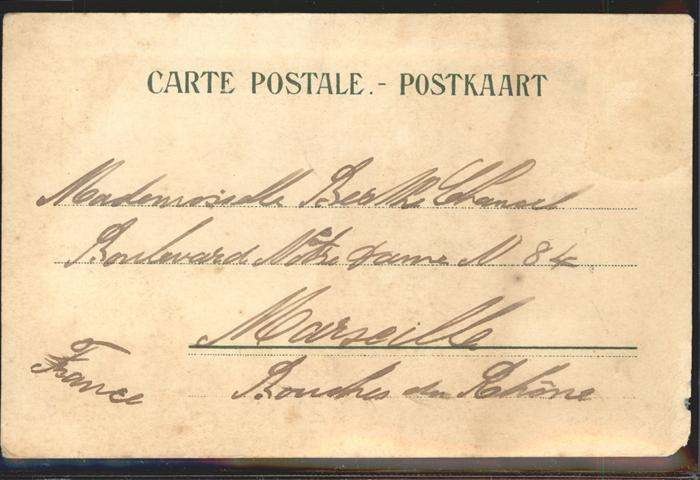 CARTE POSTALE. - POSTKAART
Mademoiselle Berthe
Boulevard Notre dame N 84
Marseille
France
Bouches du Rhône